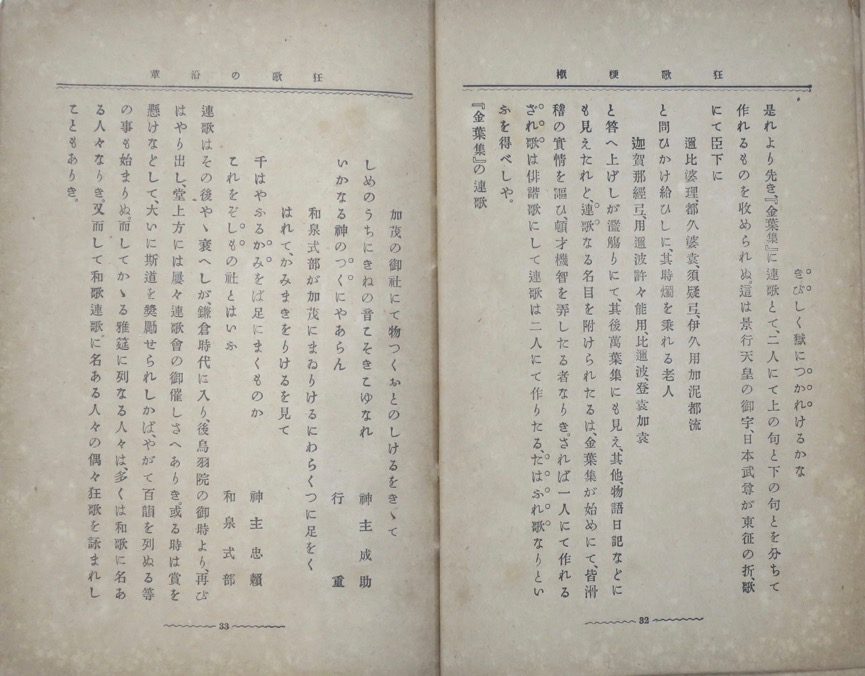 狂歌梗概
きびしく獄につかれけるかな
是れより先き『金葉集』に連歌とて、二人にて上の句と下の句とを分ちて
作れるものを收められぬ。這は景行天皇の御宇、日本武尊が東征の折、歌
にて臣下に
邇比婆理、都久婆袁須疑弖、伊久用加泥都流
と問ひかけ給ひしに、其時燭を乘れる老人
迦賀那經弖、用邇波許々能用、比邇波、登袁加袁
と答へ上げしが濫觴りにて、其後萬葉集にも見え、其他、物語日記などに
も見えたれど、連歌なる名目を附けられたるは、金葉集が始めにて、皆滑
稽の實情を謳ひ、頓才機智を弄したる者なりき。されば一人にて作れる
ざれ歌は俳諧歌にして連歌は二人にて作りたる、たはふれ歌なりとい
ふを得べしや。
『金葉集』の連歌
32
狂歌の沿革
加茂の御社にて物つくおとのしけるをきゝて
神主成助
しめのうちにきねの音こそきこゆなれ
行重
いかなる神のつくにやあらん
和泉式部が加茂にまゐりけるにわらくつに足をく
はれて、かみまきをりけるを見て
神主忠賴
千はやふるかみをば足にまくものか
和泉式部
これをぞしもの社とはいふ
連歌はその後やゝ衰へしが、鎌倉時代に入り後鳥羽院の御時より、再び
はやり出し、堂上方には屢々連歌會の御催しさへありき或る時は賞を
懸けなどして、大いに斯道を奬勵せられしかばやがて百韻を列ぬる等
の事も始まりぬ。而してかゝる雅筵に列なる人々は、多くは和歌に名あ
る人々なりき。又而して和歌連歌に名ある人々の偶々狂歌を詠まれし
こともありき。
33